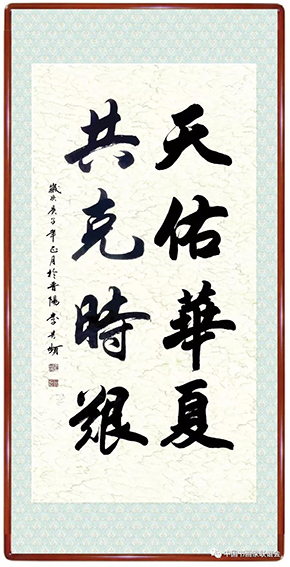 天佑華夏
共克時艱
歲次庚子年正月於晋陽李
中国书画家联谊会